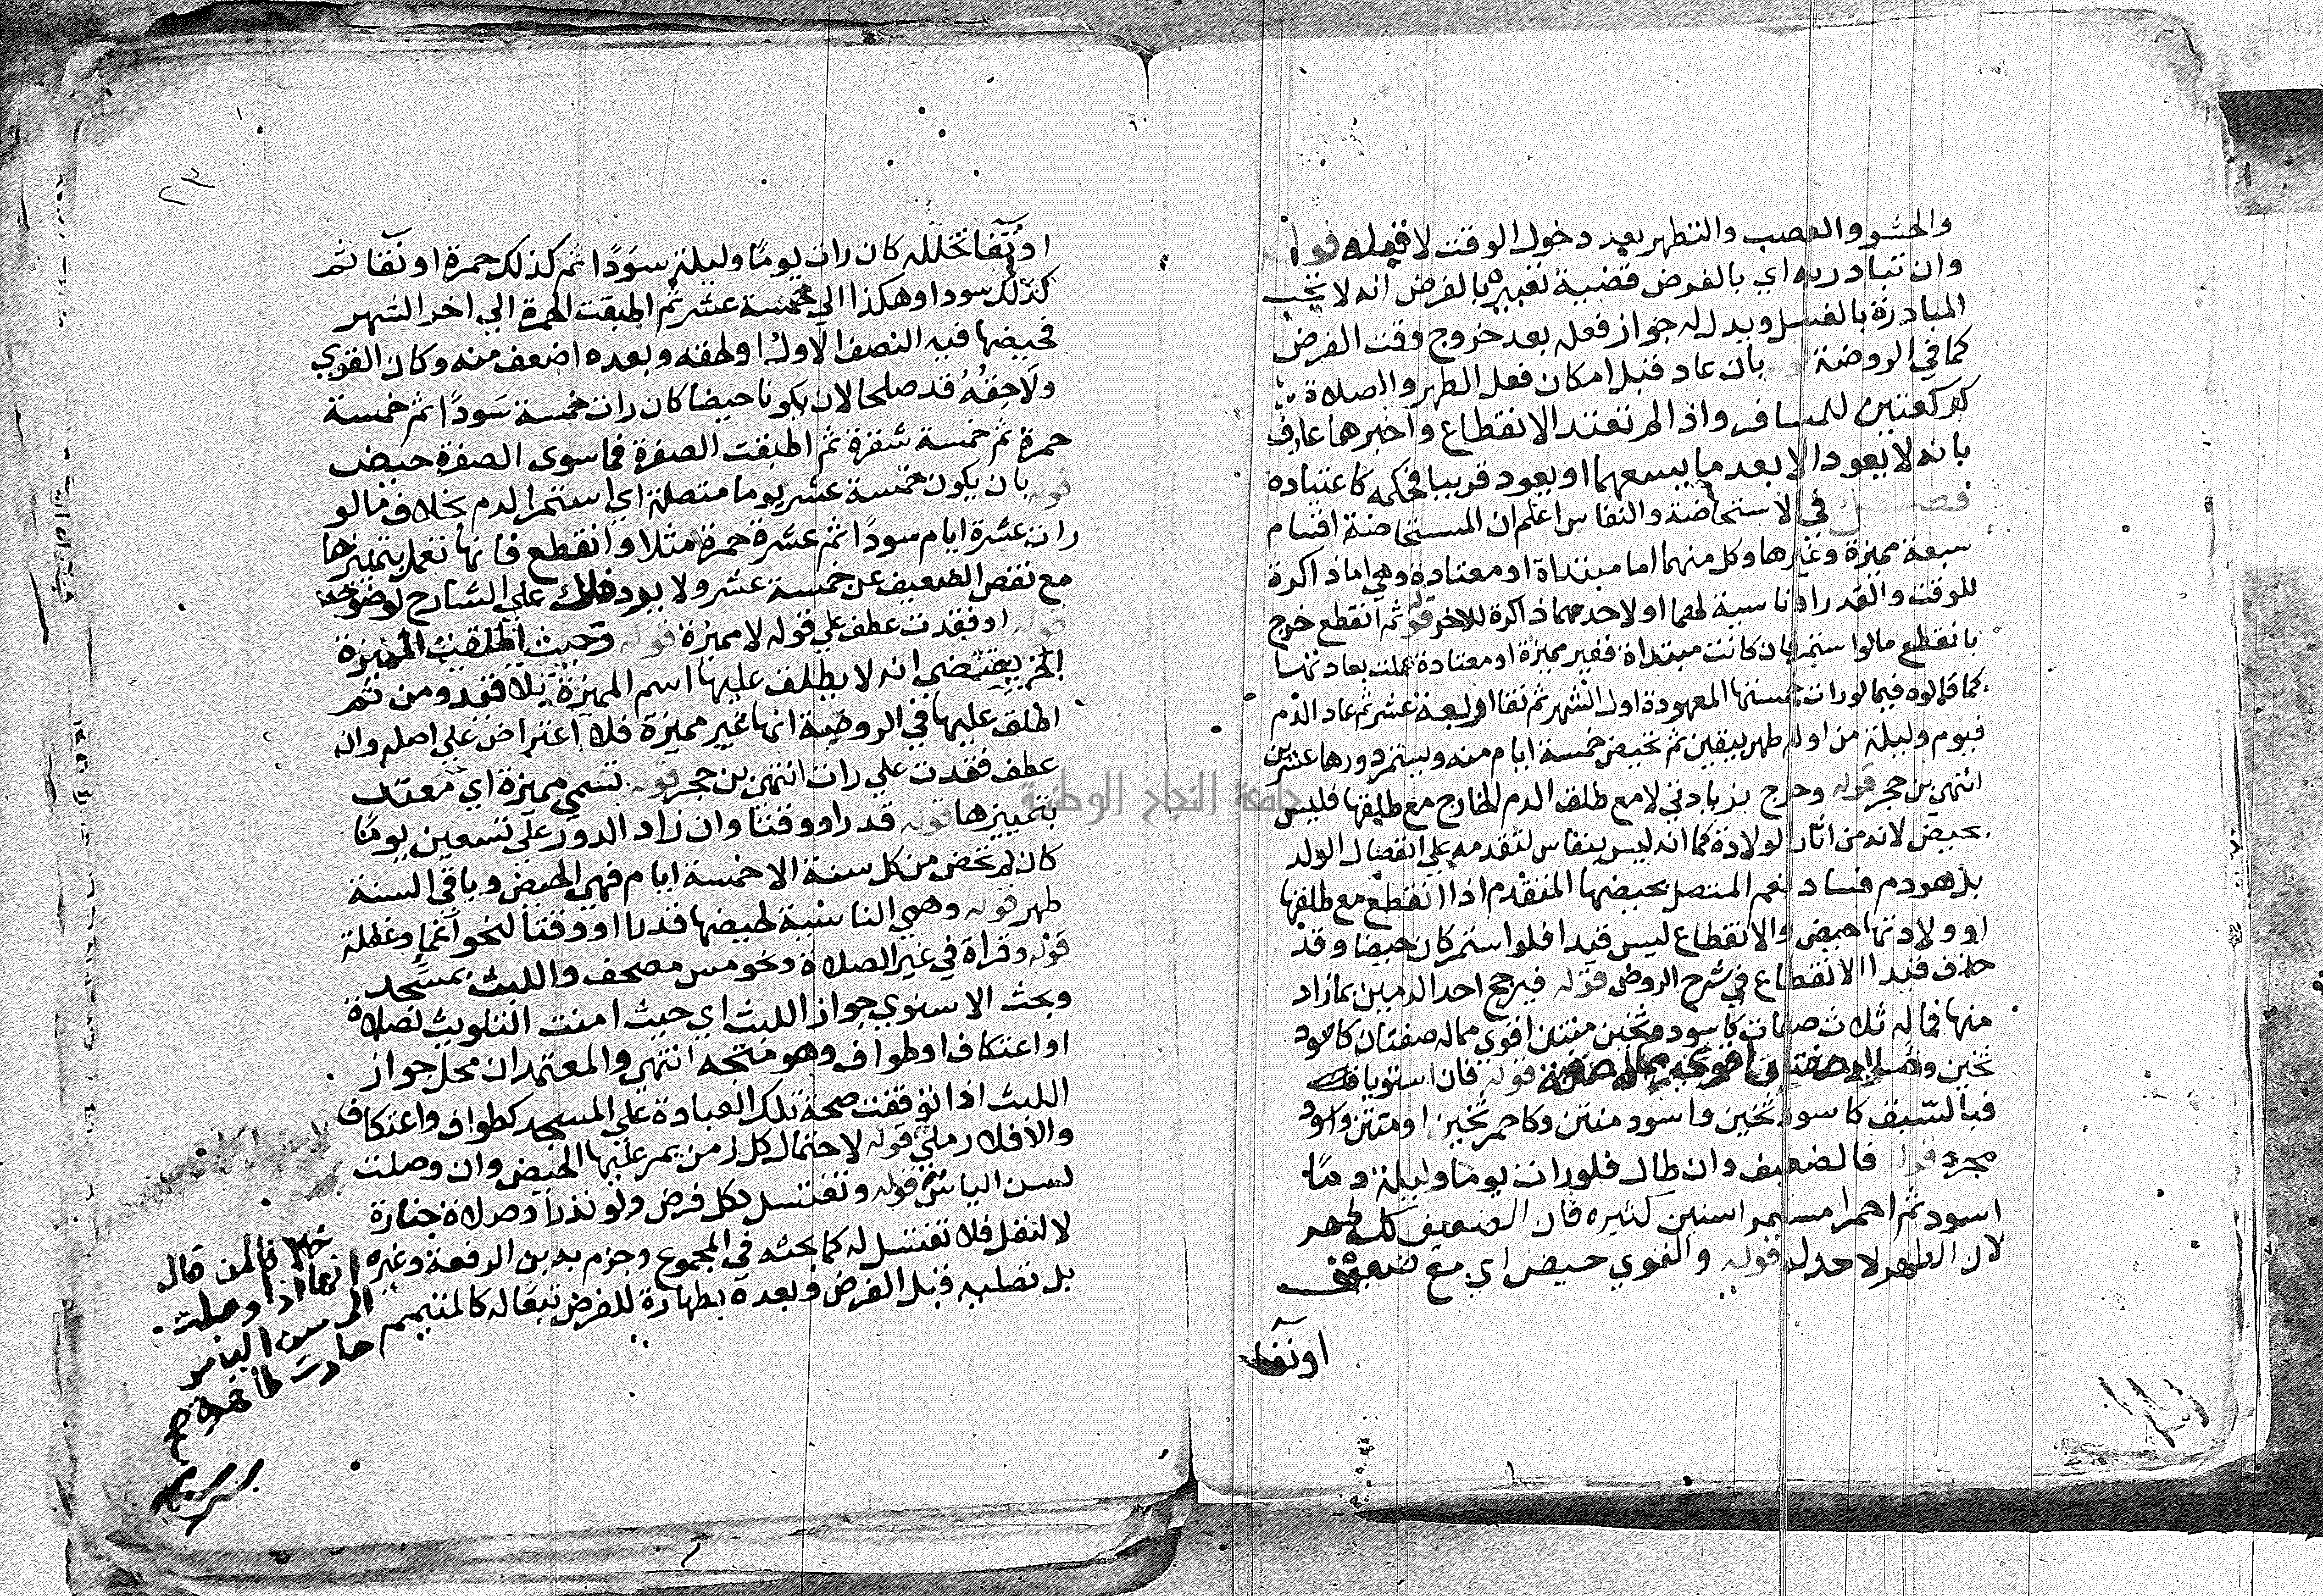 والحشو والعصب والتطهر بعد دخول الوقت لا قبله قوله
وان تبادر به اي بالفرض قضية تعبيره بالفرض انه لا تجب
المبادرة بالغسل ويدل له جواز فعله بعد خروج وقت الفرض
كما في الروضة بان عاد قبل امكان فعل الطهر والصلاة
كركعتين للمسافر واذا لم تعتد الانقطاع واخبرها عارف
بانه لا يعود الا بعد ما يسعهما او يعود قريبا فحكمه كاعتياده
فصل في الاستحاضة والنفاس اعلم ان المستحاضة اقسام
سبعة مميزة وغيرها وكل منهما اما مبتداة او معتادة وهي اما ذاكرة
للوقت والقدر او ناسية لهما او لاحدهما ذاكرة للاخر قوله ثم انقطع خرج
بانقطع ما لو استمر فان كانت مبتداة فغير مميزة او معتادة عملت بعادتها
كما قالوه فيما لو رات خمستها المعهودة اول الشهر ثم نقا اربعة عشر ثم عاد الدم
فيوم وليلة من اوله طهر بيقين ثم تحيض خمسة ايام منه ويستمر دورها عشرين
انتهى بن حجر قوله وخرج بزيادتي لا مع طلق الدم الخارج مع طلقها فليس
بحيض لانه من اثار الولادة كما انه ليس بنفاس لتقدمه علي انفصال الولد
بل هو دم فساد نعم المتصل بحيضها المتقدم اذا انقطع مع طلقها
او ولادتها حيض والانقطاع ليس قيدا فلو استمر كان حيضا وقد
حذف قيد الانقطاع في شرح الروض قوله فيرجح احد الدمين بما زاد
منها فما له ثلاث صفات كاسود وثخين منتن اقوي مما له صفتان كاسود
ثخين وما له صفتان اقوي مما له صفة قوله فان استويا
فبالسبق كاسود ثخين واسود منتن وكاحمر ثخين او منتن واسود
مجرد قوله فالضعيف وان طال فلو رات يوما وليلة دما
اسود ثم احمر مستمرا سنين كثيره فان الضعيف كله طهر
لان الطهر لا حد له قوله والقوي حيض اي مع ضعيف
او نقا
٢٣
او نقا تخلله كان رات يوما وليلة سودا ثم كذلك حمرة او نقا ثم
كذلك سودا وهكذا الي خمسة عشر ثم اطبقت الحمرة الي اخر الشهر
فحيضها فيه النصف الاول او لحقه وبعده اضعف منه وكان القوي
ولاحقه قد صلحا لان يكونا حيضا كان رات خمسة سودا ثم خمسة
حمرة ثم خمسة شقرة ثم اطبقت الصفرة فما سوى الصفرة حيض
قوله بان يكون خمسة عشر يوما متصلة اي استمر الدم بخلاف ما لو
رات عشرة ايام سودا ثم عشرة حمرة مثلا وانقطع فانها تعمل بتمييزها
مع نقص الضعيف عن خمسة عشر ولا يرد ذلك علي الشارح لوضوحه
قوله او فقدت عطف علي قوله لا مميزة قوله وحيث اطلقت المميزة
الخ يقتضي انه لا يطلق عليها اسم المميزة بلا فقد ومن ثم
اطلق عليها في الروضة انها غير مميزة فلا اعتراض علي اصله وانه
عطف فقدت علي رات انتهى بن حجر قوله تسمي مميزة اي معتد
بتمييزها قوله قدرا ووقتا وان زاد الدور علي تسعين يوما
كان لم تحض من كل سنة الا خمسة ايام فهي الحيض وباقي السنة
طهر قوله وهي الناسية لحيضها قدرا او وقتا لنحو اغما وغفلة
قوله وقراة في غير الصلاة ونحو مس مصحف واللبث بمسجد
وبحث الاسنوي جواز اللبث اي حيث امنت التلويث لصلاة
او اعتكاف او طواف وهو متجه انتهي والمعتمد ان محل جواز
اللبث اذا توقفت صحة تلك العبادة علي المسجد كطواف واعتكاف
والا فلا رملي قوله لاحتمال كل زمن يمر عليها الحيض وان وصلت
لسن الياس قوله وتغتسل لكل فرض ولو نذرا وصلاة جنازة
لا لنفل فلا تغتسل له كما بحثه في المجموع وجزم به بن الرفعة وغيره
بل تصليه قبل الفرض وبعده بطهارة للفرض تبعا له كالمتيمم
خلافا لمن قال
انها اذا وصلت
الي سن الياس
صارت طاهرة